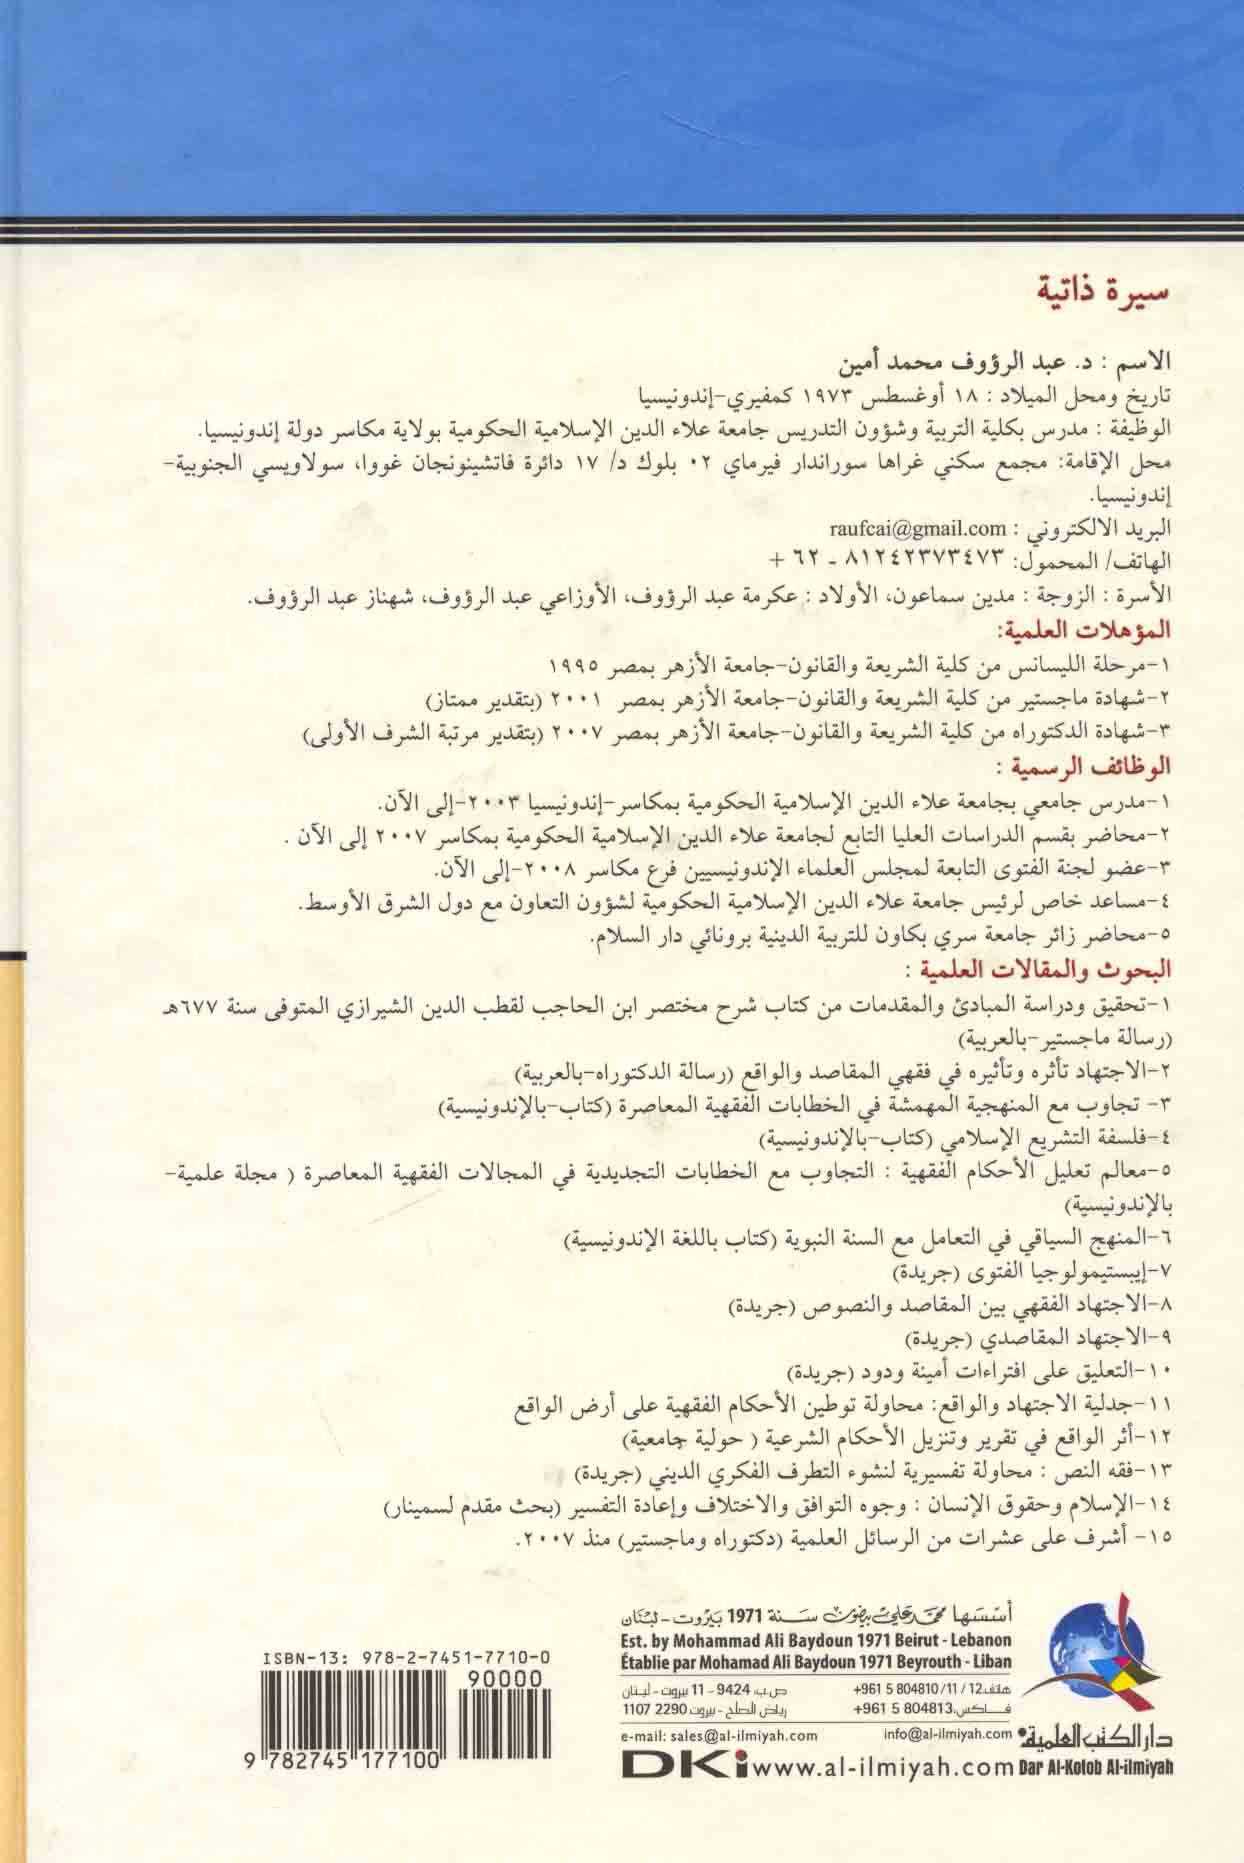 سيرة ذاتية
الاسم : د. عبد الرؤوف محمد أمين
تاريخ ومحل الميلاد : ١٨ أوغسطس ١٩٧٣ كمفيري-إندونيسيا
الوظيفة : مدرس بكلية التربية وشؤون التدريس جامعة علاء الدين الإسلامية الحكومية بولاية مكاسر دولة إندونيسيا.
محل الإقامة: مجمع سكني غراها سوراندار فيرماي ٠٢ بلوك د/ ١٧ دائرة فاتشينونجان غووا، سولاويسي الجنوبية-
إندونيسيا.
البريد الالكتروني : raufcai@gmail.com
الهاتف/ المحمول: ٨١٢٤٢٣٧٣٤٧٣ - ٦٢ +
الأسرة : الزوجة : مدين سماعون، الأولاد : عكرمة عبد الرؤوف، الأوزاعي عبد الرؤوف، شهناز عبد الرؤوف.
المؤهلات العلمية:
١-مرحلة الليسانس من كلية الشريعة والقانون-جامعة الأزهر بمصر ١٩٩٥
٢-شهادة ماجستير من كلية الشريعة والقانون-جامعة الأزهر بمصر ٢٠٠١ (بتقدير ممتاز)
٣-شهادة الدكتوراه من كلية الشريعة والقانون-جامعة الأزهر بمصر ٢٠٠٧ (بتقدير مرتبة الشرف الأولى)
الوظائف الرسمية :
١-مدرس جامعي بجامعة علاء الدين الإسلامية الحكومية بمكاسر-إندونيسيا ٢٠٠٣-إلى الآن.
٢-محاضر بقسم الدراسات العليا التابع لجامعة علاء الدين الإسلامية الحكومية بمكاسر ٢٠٠٧ إلى الآن .
٣-عضو لجنة الفتوى التابعة لمجلس العلماء الإندونيسيين فرع مكاسر ٢٠٠٨-إلى الآن.
٤-مساعد خاص لرئيس جامعة علاء الدين الإسلامية الحكومية لشؤون التعاون مع دول الشرق الأوسط.
٥-محاضر زائر جامعة سري بكاون للتربية الدينية برونائي دار السلام.
البحوث والمقالات العلمية :
١-تحقيق ودراسة المبادئ والمقدمات من كتاب شرح مختصر ابن الحاجب لقطب الدين الشيرازي المتوفى سنة ٦٧٧هـ
(رسالة ماجستير-بالعربية)
٢-الاجتهاد تأثره وتأثيره في فقهي المقاصد والواقع (رسالة الدكتوراه-بالعربية)
٣- تجاوب مع المنهجية المهمشة في الخطابات الفقهية المعاصرة (كتاب-بالإندونيسية)
٤-فلسفة التشريع الإسلامي (كتاب-بالإندونيسية)
٥-معالم تعليل الأحكام الفقهية : التجاوب مع الخطابات التجديدية في المجالات الفقهية المعاصرة ( مجلة علمية-
بالإندونيسية)
٦-المنهج السياقي في التعامل مع السنة النبوية (كتاب باللغة الإندونيسية)
٧-إيبستيمولوجيا الفتوى (جريدة)
٨-الاجتهاد الفقهي بين المقاصد والنصوص (جريدة)
٩-الاجتهاد المقاصدي (جريدة)
١٠-التعليق على افتراءات أمينة ودود (جريدة)
١١-جدلية الاجتهاد والواقع: محاولة توطين الأحكام الفقهية على أرض الواقع
١٢-أثر الواقع في تقرير وتنزيل الأحكام الشرعية ( حولية جامعية)
١٣-فقه النص : محاولة تفسيرية لنشوء التطرف الفكري الديني (جريدة)
١٤-الإسلام وحقوق الإنسان : وجوه التوافق والاختلاف وإعادة التفسير (بحث مقدم لسمينار)
١٥- أشرف على عشرات من الرسائل العلمية (دكتوراه وماجستير) منذ ٢٠٠٧.
أسسها محمد علي بيضون سنة 1971 بيروت - لبنان
Est. by Mohammad Ali Baydoun 1971 Beirut - Lebanon
Établie par Mohamad Ali Baydoun 1971 Beyrouth - Liban
هاتف: +961 5 804810 / 11 / 12
فاكس: +961 5 804813
ص.ب: 9424 - 11 بيروت - لبنان
رياض الصلح - بيروت 2290 1107
e-mail: sales@al-ilmiyah.com
info@al-ilmiyah.com
DKi www.al-ilmiyah.com
دار الكتب العلمية
Dar Al-Kotob Al-ilmiyah
ISBN-13: 978-2-7451-7710-0
90000
9 782745 177100